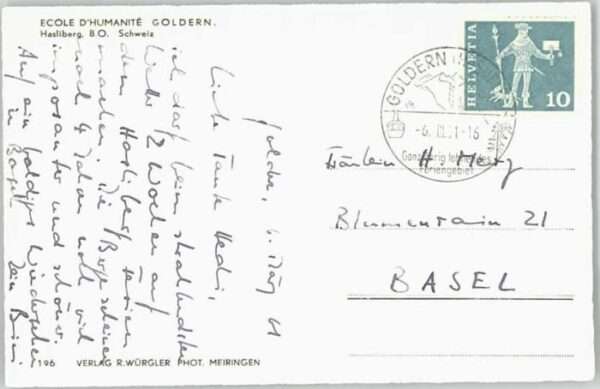 ECOLE D'HUMANITÉ GOLDERN.
Hasliberg, B.O. Schweiz
Goldern, 6. März 61
Liebe Tante Hedi,
ich darf beim strahlendsten
Wetter 2 Wochen auf
dem Hasliberg Ferien
machen. Die Berge scheinen
nach 4 Jahren noch viel
imposanter und schöner.
Auf ein baldiges Wiedersehen
in Basel
Dein
196 VERLAG R. WÜRGLER PHOT. MEIRINGEN
HELVETIA
10
GOLDERN
-6. III. 61-16
Ganzjährig
Feriengebiet
Fräulein H. Merz
Blumenrain 21
BASEL